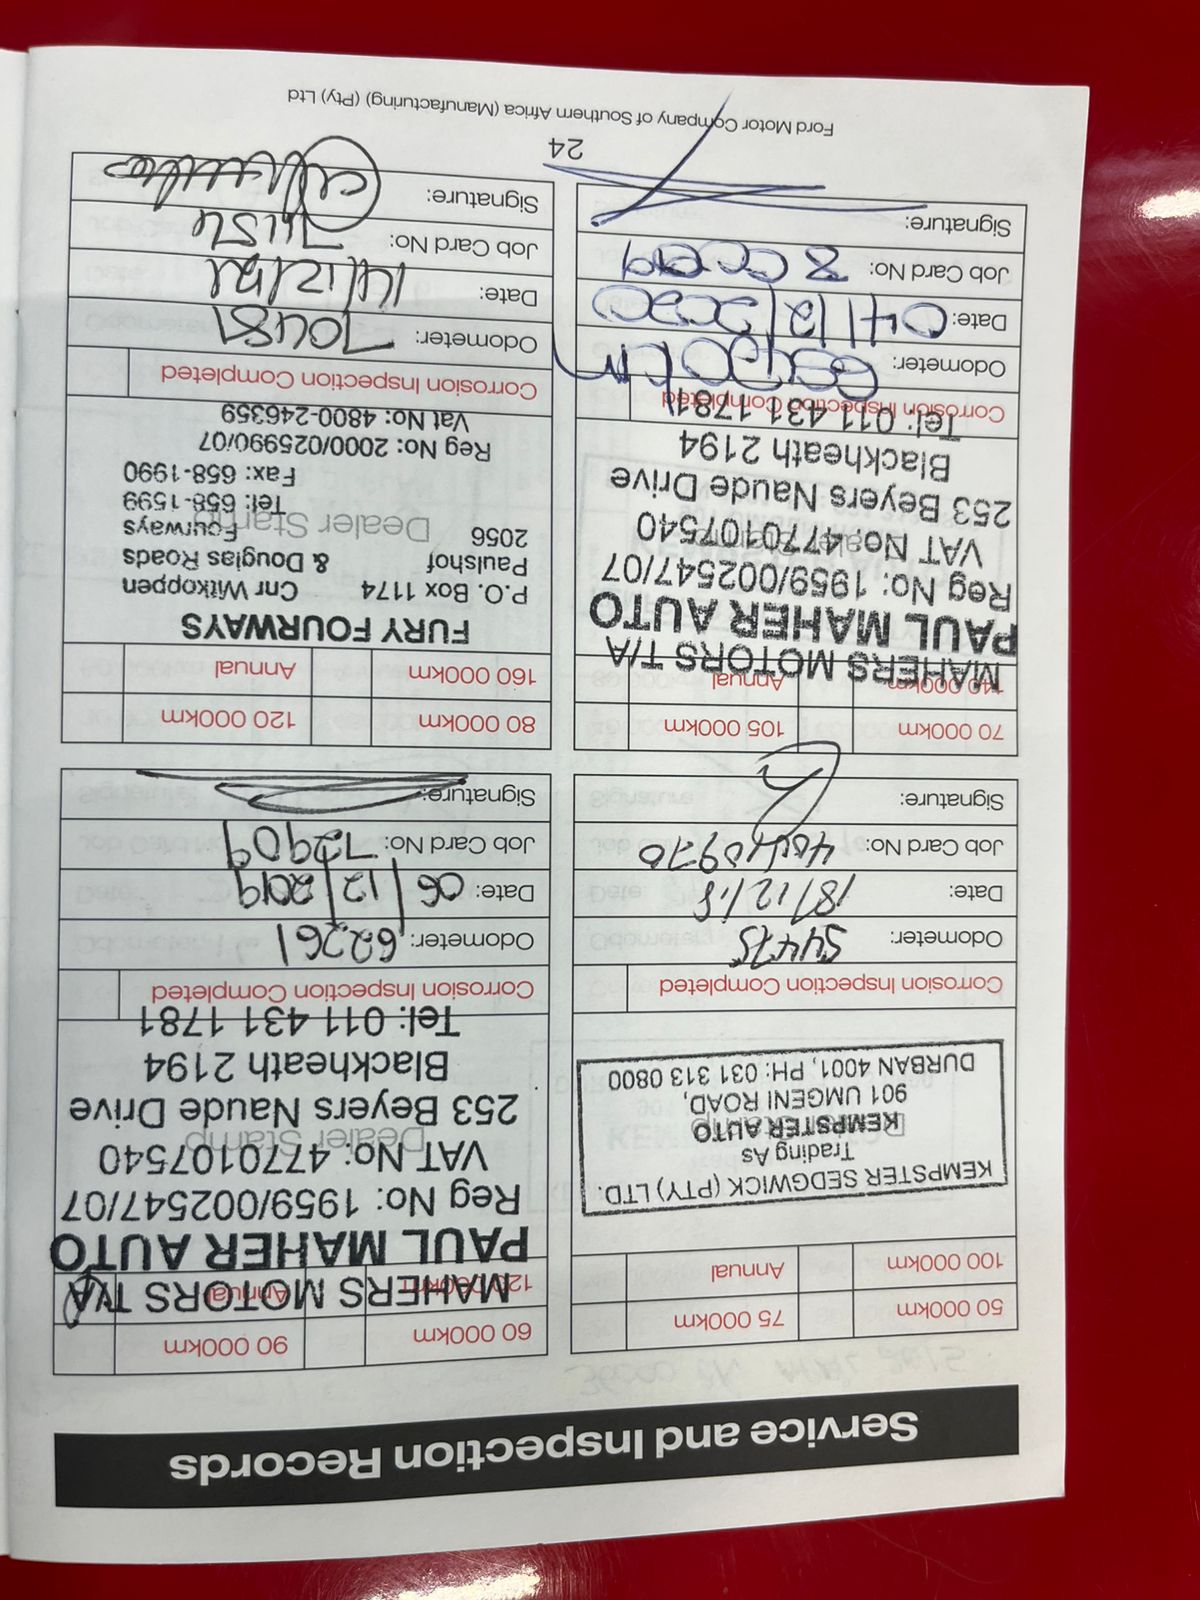 Service and Inspection Records
50 000km
75 000km
100 000km
Annual
KEMPSTER SEDGWICK (PTY) LTD.
Trading As
KEMPSTER AUTO
901 UMGENI ROAD,
DURBAN 4001, PH: 031 313 0800
Corrosion Inspection Completed
Odometer: 54475
Date: 18/12/18
Job Card No:
Signature:
60 000km
90 000km
120 000km
Annual
MAHERS MOTORS T/A
PAUL MAHER AUTO
Reg No: 1959/002547/07
VAT No: 4770107540
Dealer Stamp
253 Beyers Naude Drive
Blackheath 2194
Tel: 011 431 1781
Corrosion Inspection Completed
Odometer: 62261
Date: 06/12/2019
Job Card No: 72909
Signature:
70 000km
105 000km
140 000km
Annual
MAHERS MOTORS T/A
PAUL MAHER AUTO
Reg No: 1959/002547/07
VAT No: 4770107540
253 Beyers Naude Drive
Blackheath 2194
Tel: 011 431 1781
Corrosion Inspection Completed
Odometer:
Date: 04/12/2020
Job Card No:
Signature:
80 000km
120 000km
160 000km
Annual
FURY FOURWAYS
P.O. Box 1174 Cnr Witkoppen
Paulshof & Douglas Roads
2056 Fourways
Dealer Stamp
Tel: 658-1599
Fax: 658-1990
Reg No: 2000/025990/07
Vat No: 4800-246359
Corrosion Inspection Completed
Odometer: 70487
Date:
Job Card No:
Signature:
24
Ford Motor Company of Southern Africa (Manufacturing) (Pty) Ltd